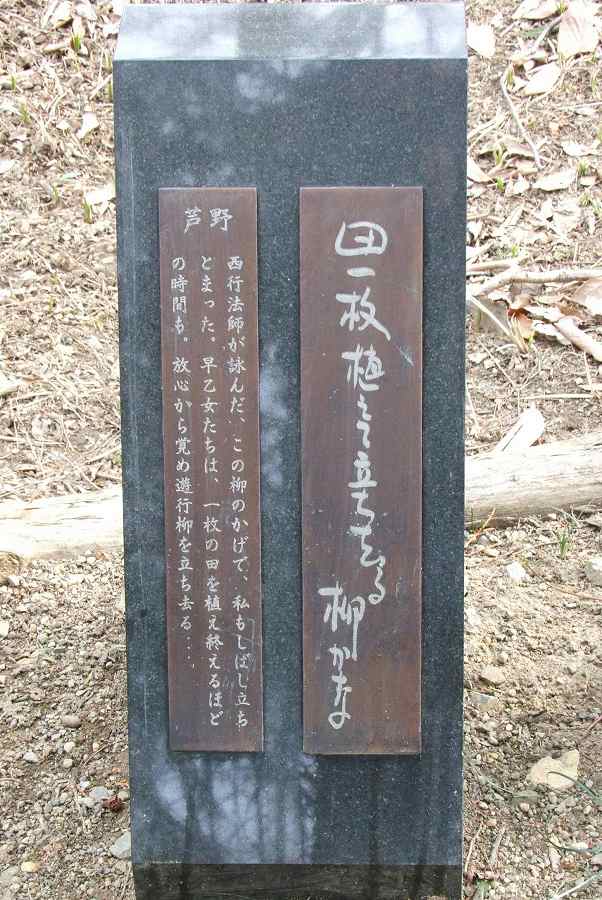 田一枚植えて立ち去る
柳かな
芦野
西行法師が詠んだ、この柳のかげで、私もしばし立ち
とまった。早乙女たちは、一枚の田を植え終えるほど
の時間も。放心から覚め遊行柳を立ち去る….